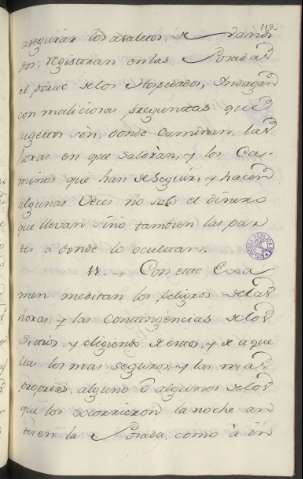 119
asegurar los asaltos, se 
por, registran en las Posadas
el porte de los Hospedados, Indagan
con maliciosas preguntas que
sugetos son, donde caminan, las
horas en que Saldran, y los Ca-
minos que han de seguir, y hacen
algunas veces no solo el dinero
que llevan sino tambien las par-
tes à donde lo ocultan.
Con este Exa-
men meditan los peligros de las
horas, y las Contingencias de los
Sitios, y eligiendo de estos, y de aque-
llas los mas seguros, y las mas
propias, alguno ò algunos de los
que los discurrieron la noche an-
tes en la Posada, como à un